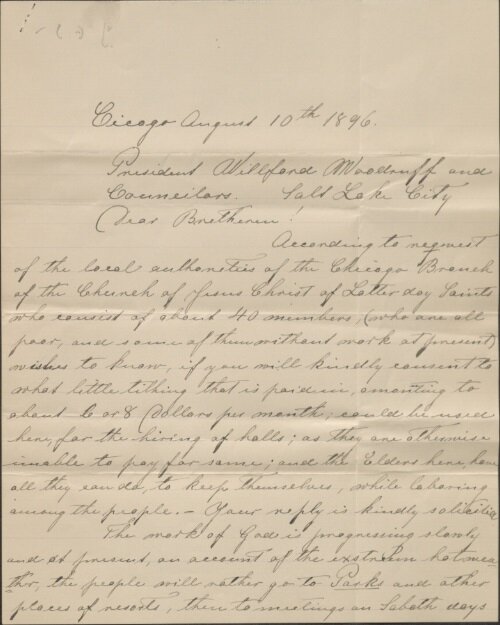 Cicago August 10th 1896.
President Willford Woodruff and
Councilors. Salt Lake City
Dear Bretheren!
According to reqnest
of the local authoreties of the Chicago Branch
of the Church of Jesus Christ of Latter day Saints
who consist of about 40 members, (who are all
poor, and some of them without work at present)
wishes to know, if you will kindly consent to
what little tithing that is paid in, amonting to
about 6 or 8 Dollars per month; could be used
here, for the hiring of halls; as they are otherwise
unable to pay for same; and the Elders here, have
all they can do, to keep themselves, while laboring
among the people. – Your reply is kindly
The work of God is progressing slowly
and at present, on account of the extrem hot wea
ther, the people will rather go to Parks and other
places of resorts, then to meetings on Sabeth days